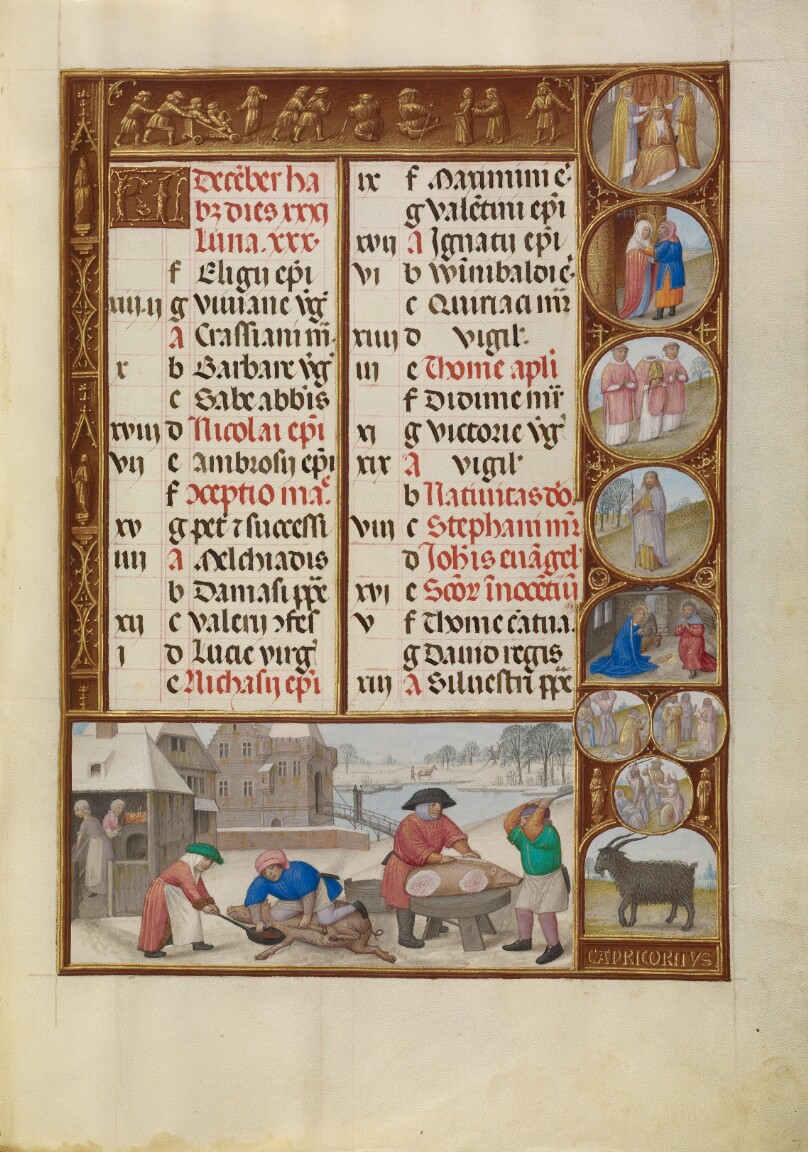 KL Decēber ha
bꝫ dies xxxi
Luna. xxx.
f Eligii epi
xiii.ii g Viuiane v̄g
A Crassiani m̄.
x b Barbare v̄g
c Sabe abbis
xviii d Nicolai epi
vii e Ambrosii epi
f Cōceptio ma.
xv g pet ⁊ successi
iiii A Melchiadis
b Damasi pp̄e
xii c Valerij ↄfes
i d Lucie virg
e Nichasij epi
ix f Maximini e.
g Valētini epi
xvii A Ignatii epi
vi b Winibaldi e.
c Quiriaci m̄r
xiiii d vigil.
iii e Thome apli
f Didime m̄r
xi g Victorie v̄g
xix A vigil
b Natiuitas do.
viii c Stephani m̄r
d Joh̄is euāgel
xvi e Scōr īnocētiū
v f Thome cātua.
g Dauid regis
xiii A Siluestri pp̄e
CAPRICORNVS